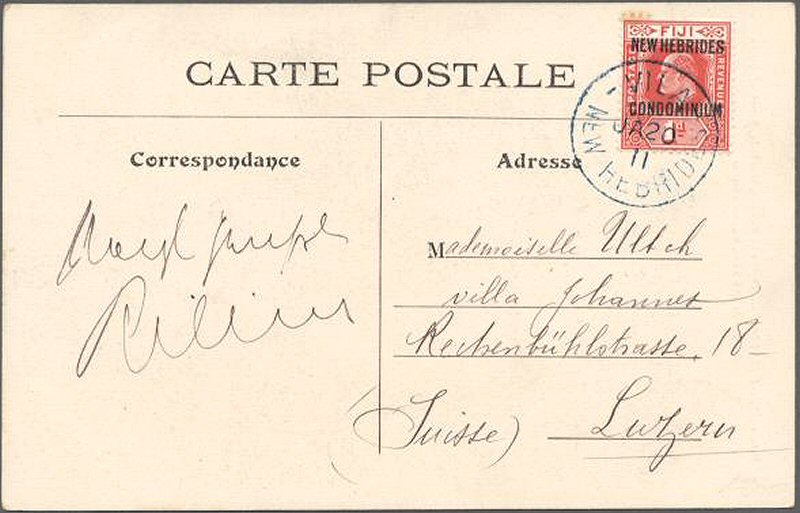 CARTE POSTALE
FIJI
NEW HEBRIDES
CONDOMINIUM
REVENUE
1d
VILA
JA 20
11
NEW HEBRIDES
Correspondance
Adresse
Mademoiselle Ultsch
villa Johannes
Rechenbühlstrasse, 18-
(Suisse) Luzern